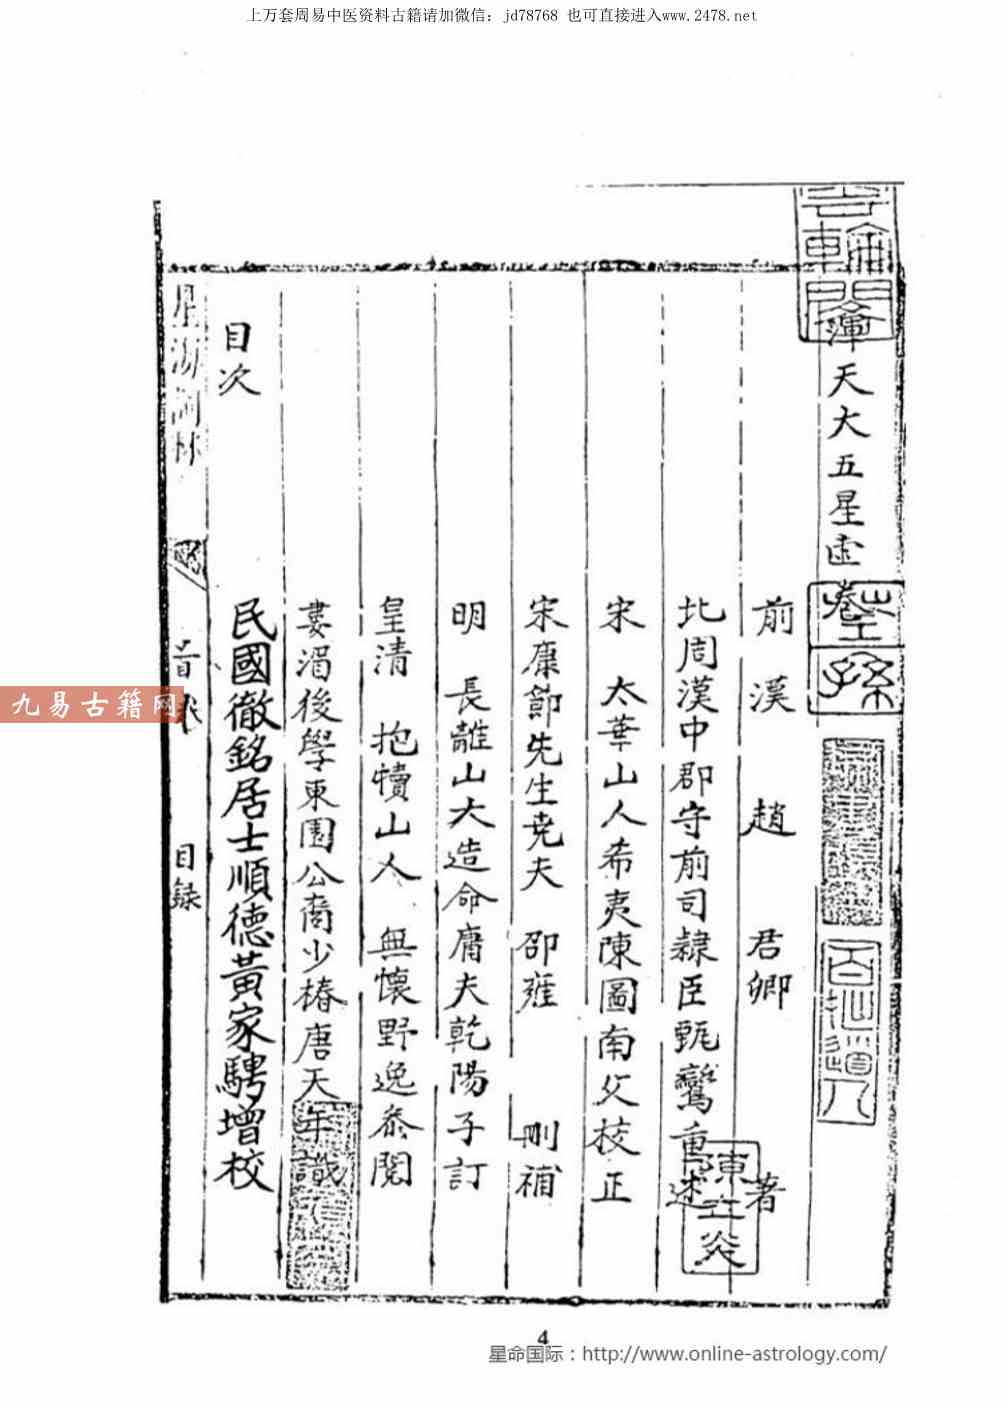 上万套周易中医资料古籍请加微信：jd78768 也可直接进入www.2478.net
渾天大五星
前漢 趙 君卿 著
北周漢中郡守前司隸臣甄鸞重述
宋 太華山人希夷陳圖南父校正
宋康節先生堯夫 邵雍 刪補
明 長離山大造命庸夫乾陽子訂
皇清 抱犢山人 無懷野逸叅閱
婁湄後學東園公裔少椿唐天年識
民國徹銘居士順德黃家騁增校
目次
目錄
陳立炎
九易古籍网
4
星命国际：http://www.online-astrology.com/